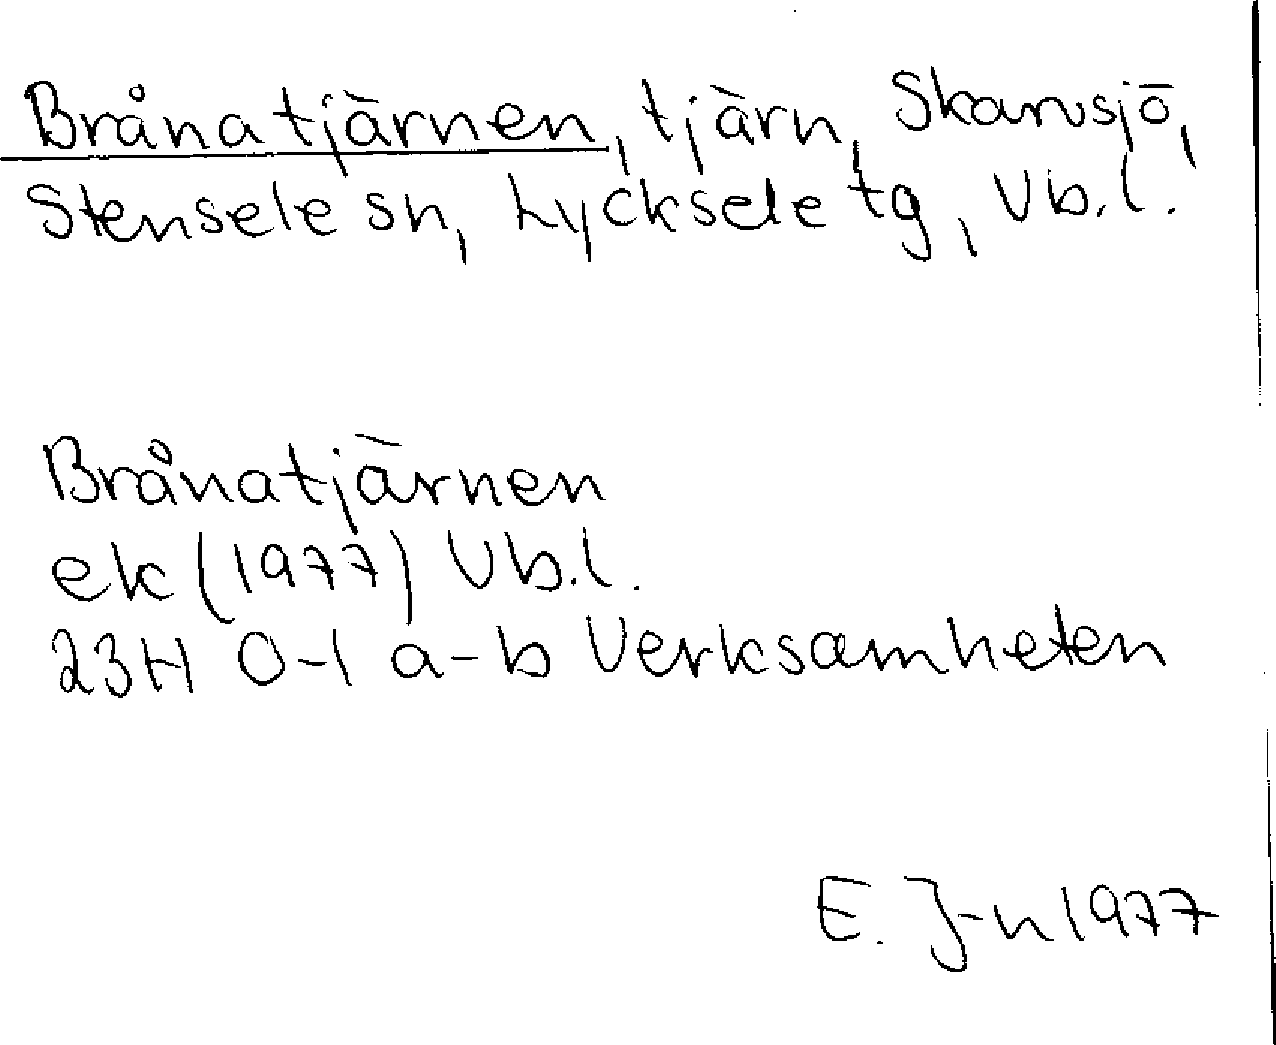 Brånatjärnen, tjärn, Skansjö,
Stensele sn, Lycksele tg, Vb.l.
Brånatjärnen
ek (1977) Vb.l.
23H 0-1 a-b Verksamheten
E. J-n 1977